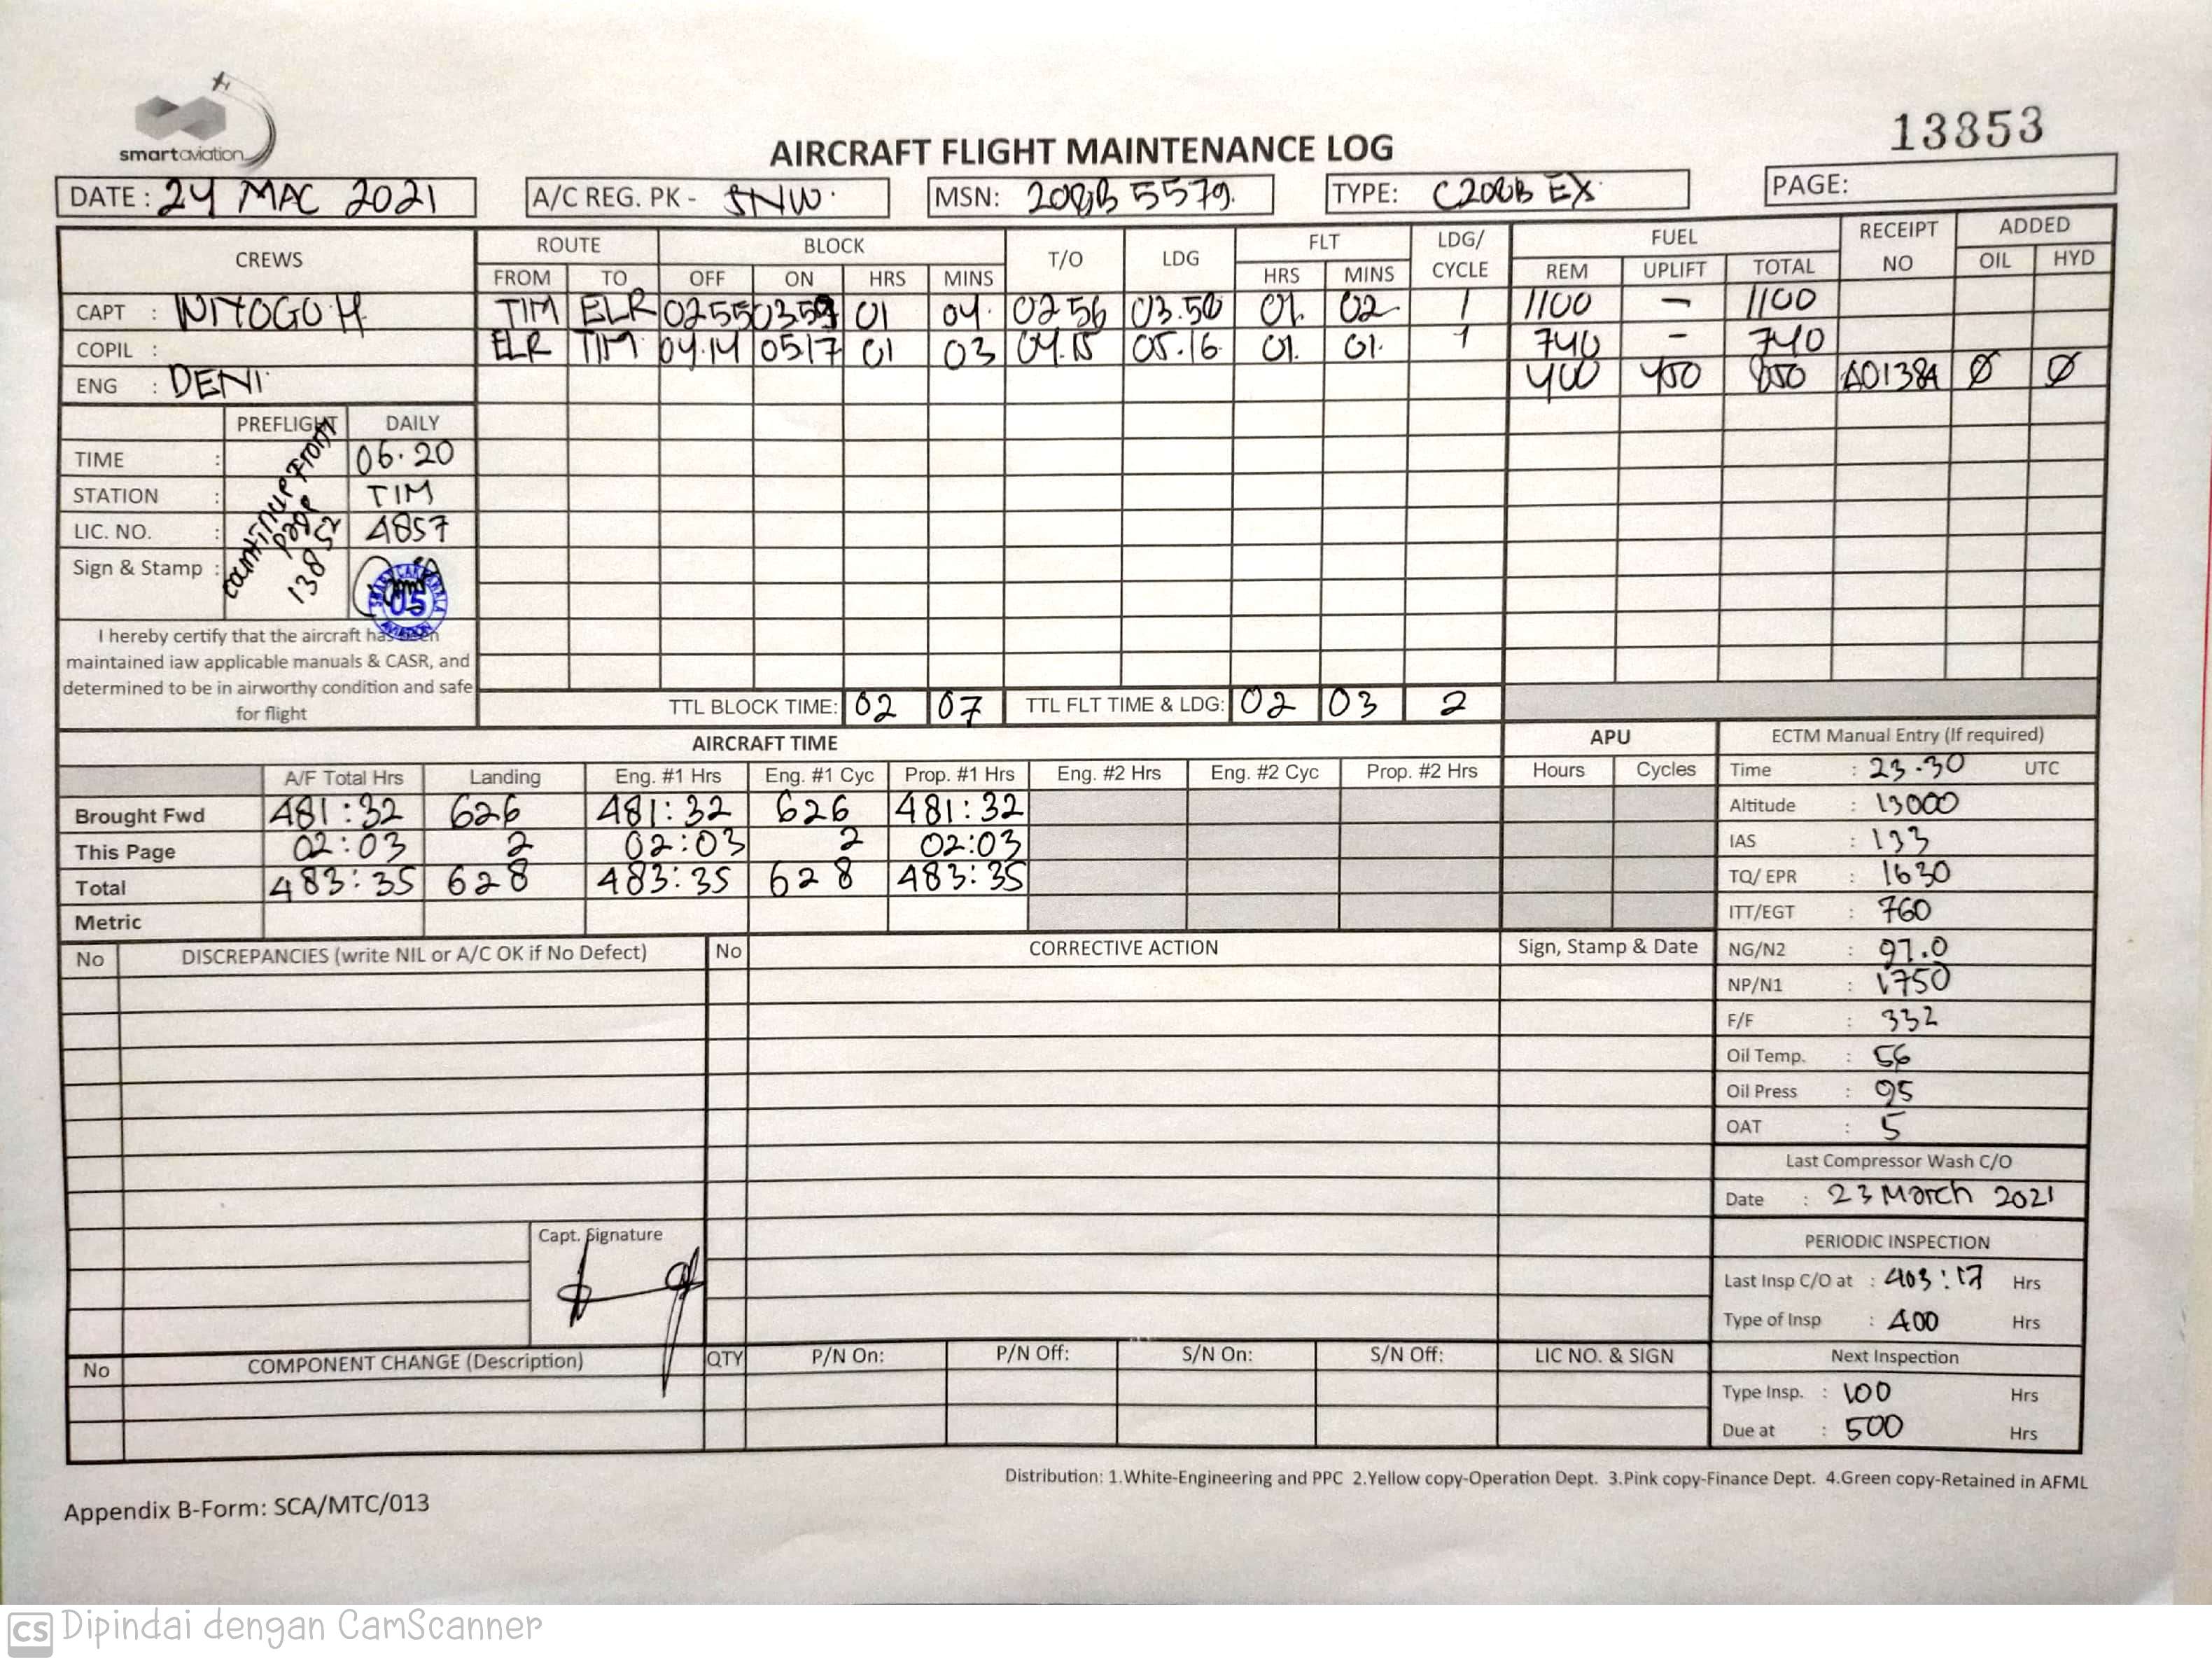 smartaviation
13853
AIRCRAFT FLIGHT MAINTENANCE LOG
DATE : 24 MAC 2021 A/C REG. PK - SNW. MSN: 208B 5579. TYPE: C208B EX PAGE:
CREWS ROUTE BLOCK T/O LDG FLT LDG/ CYCLE FUEL RECEIPT NO ADDED
FROM TO OFF ON HRS MINS HRS MINS REM UPLIFT TOTAL OIL HYD
CAPT : TIM ELR 0255 0359 01 04. 0256 01. 02 1 1100 - 1100
COPIL : ELR TIM 04.14 0517 01 03 04.15 05.16 01. 01. 1 740 - 740
ENG : DENI 400 450 850 A01384 Ø Ø
PREFLIGHT DAILY
TIME : 06.20
STATION : TIM
LIC. NO. : 4857
Sign & Stamp :
countinue from
page
13852
05
AVIATION
I hereby certify that the aircraft has been
maintained iaw applicable manuals & CASR, and
determined to be in airworthy condition and safe
for flight
TTL BLOCK TIME: 02 07 TTL FLT TIME & LDG: 02 03 2
AIRCRAFT TIME APU
A/F Total Hrs Landing Eng. #1 Hrs Eng. #1 Cyc Prop. #1 Hrs Eng. #2 Hrs Eng. #2 Cyc Prop. #2 Hrs Hours Cycles
Brought Fwd 481:32 626 481:32 626 481:32
This Page 02:03 2 02:03 2 02:03
Total 483:35 628 483:35 628 483:35
Metric
ECTM Manual Entry (If required)
Time : 23.30 UTC
Altitude : 13000
IAS : 133
TQ/ EPR : 1630
ITT/EGT : 760
NG/N2 : 97.0
NP/N1 : 1750
F/F : 332
Oil Temp. : 56
Oil Press : 95
OAT : 5
Last Compressor Wash C/O
Date : 23 March 2021
PERIODIC INSPECTION
Last Insp C/O at : 403:17 Hrs
Type of Insp : 400 Hrs
Next Inspection
Type Insp. : 100 Hrs
Due at : 500 Hrs
No DISCREPANCIES (write NIL or A/C OK if No Defect) No CORRECTIVE ACTION Sign, Stamp & Date
Capt. Signature
No COMPONENT CHANGE (Description) QTY P/N On: P/N Off: S/N On: S/N Off: LIC NO. & SIGN
Distribution: 1.White-Engineering and PPC 2.Yellow copy-Operation Dept. 3.Pink copy-Finance Dept. 4.Green copy-Retained in AFML
Appendix B-Form: SCA/MTC/013
CS Dipindai dengan CamScanner